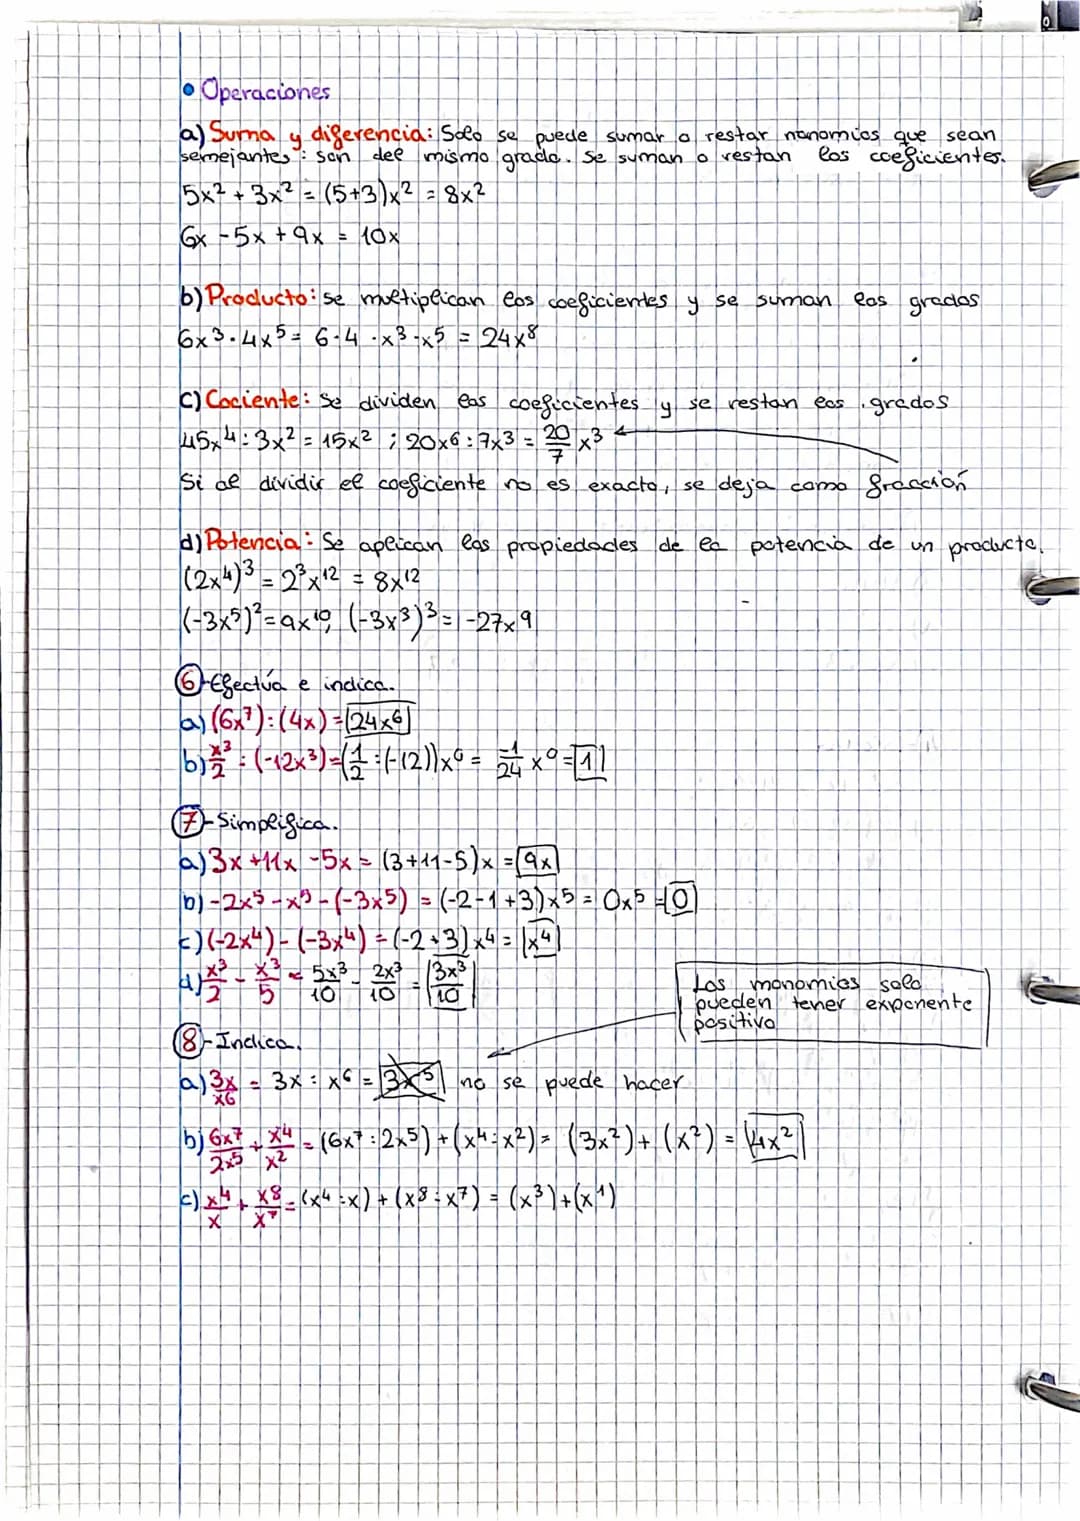 • Operaciones
a) Suma y diferencia: Solo se puede sumar o restar monomios que sean
semejantes: son del mismo grado. Se suman o restan los coeficientes.
5x² + 3x² = (5+3)x² = 8x²
6x - 5x + 9x = 10x
b) Producto: se multiplican los coeficientes y se suman los grados
6x³ · 4x⁵ = 6 · 4 · x³ · x⁵ = 24x⁸
c) Cociente: Se dividen los coeficientes y se restan los grados
45x⁴ : 3x² = 15x² ; 20x⁶ : 7x³ = 20/7 x³
Si al dividir el coeficiente no es exacto, se deja como fracción
d) Potencia: Se aplican las propiedades de la potencia de un producto.
(2x⁴)³ = 2³x¹² = 8x¹²
(-3x⁵)² = 9x¹⁰, (-3x³)³ = -27x⁹
6-Efectúa e indica.
a) (6x⁷) : (4x) = 24x⁶
b) x³/2 : (-12x³) = (1/2 : (-12))x⁰ = -1/24 x⁰ = 1
7-Simplifica.
a) 3x + 11x - 5x = (3+11-5)x = 9x
b) -2x⁵ - x⁵ - (-3x⁵) = (-2-1+3)x⁵ = 0x⁵ = 0
c) (-2x⁴) - (-3x⁴) = (-2+3)x⁴ = x⁴
d) x³/2 - x³/5 = 5x³/10 - 2x³/10 = 3x³/10
Los monomios solo
pueden tener exponente
positivo
8-Indica.
a) 3x/x⁶ = 3x : x⁶ = 3x⁻⁵ no se puede hacer
b) 6x⁷/2x⁵ + x⁴/x² = (6x⁷ : 2x⁵) + (x⁴ : x²) = (3x²) + (x²) = 4x²
c) x⁴/x + x⁸/x⁷ = (x⁴ : x) + (x⁸ : x⁷) = (x³) + (x¹)